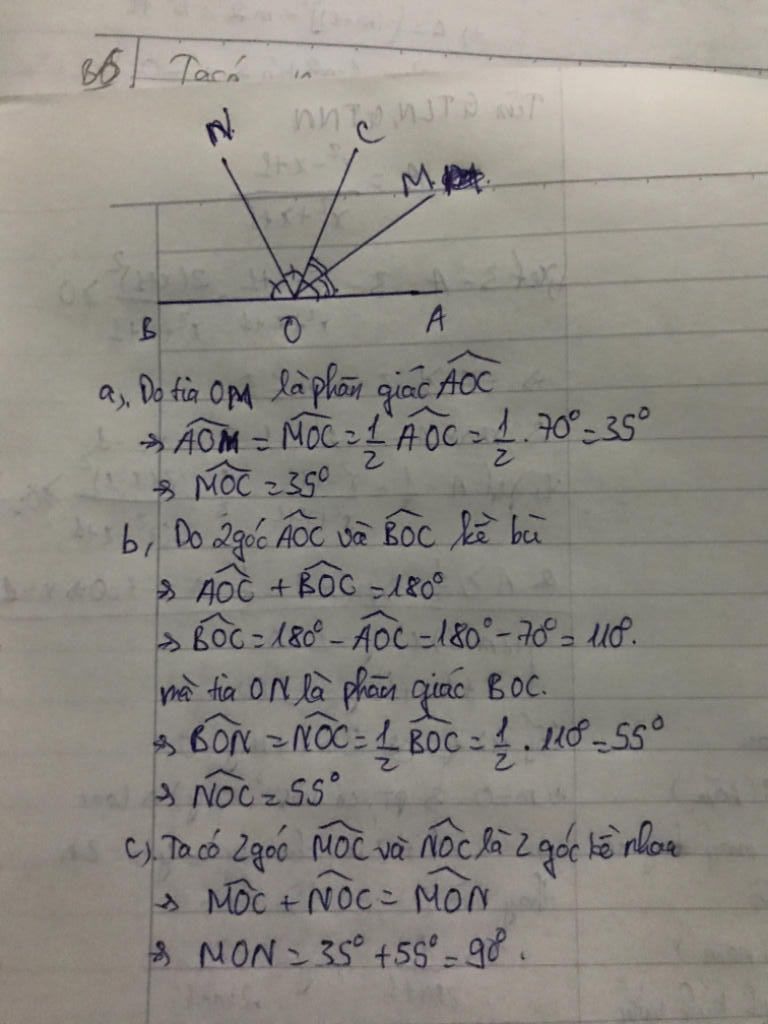 B5 Ta có
N C M
B O A
a), Do tia OM là phân giác AOC
⇒ AOM = MOC = 1/2 AOC = 1/2 . 70° = 35°
⇒ MOC = 35°
b, Do 2 góc AOC và BOC kề bù
⇒ AOC + BOC = 180°
⇒ BOC = 180° - AOC = 180° - 70° = 110°.
mà tia ON là phân giác BOC.
⇒ BON = NOC = 1/2 BOC = 1/2 . 110° = 55°
⇒ NOC = 55°
c). Ta có 2 góc MOC và NOC là 2 góc kề nhau
⇒ MOC + NOC = MON
⇒ MON = 35° + 55° = 90°.